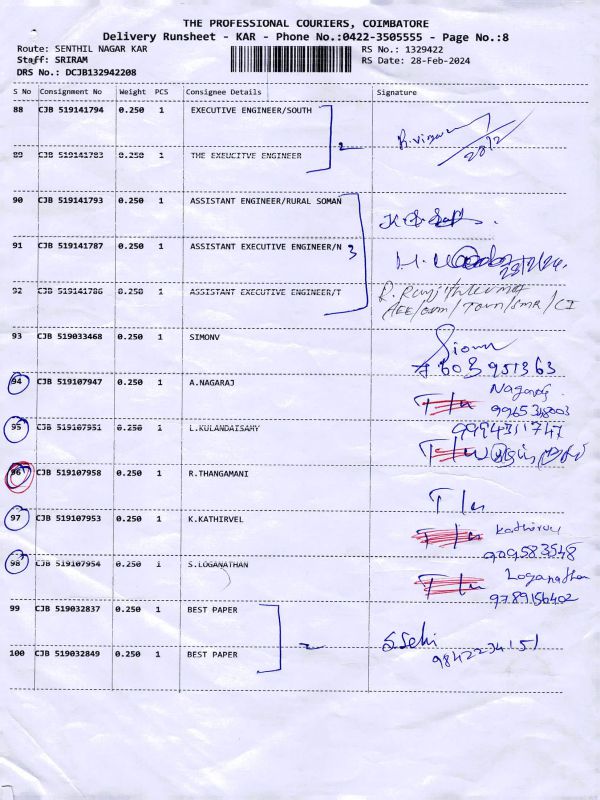 THE PROFESSIONAL COURIERS, COIMBATORE
Delivery Runsheet - KAR - Phone No.:0422-3505555 - Page No.:8
Route: SENTHIL NAGAR KAR RS No.: 1329422
Staff: SRIRAM RS Date: 28-Feb-2024
DRS No.: DCJB132942208
S No Consignment No Weight PCS Consignee Details Signature
88 CJB 519141794 0.250 1 EXECUTIVE ENGINEER/SOUTH
28/2
89 CJB 519141783 0.250 1 THE EXEUCITVE ENGINEER
2
90 CJB 519141793 0.250 1 ASSISTANT ENGINEER/RURAL SOMAN
91 CJB 519141787 0.250 1 ASSISTANT EXECUTIVE ENGINEER/N 3
28/2/24.
92 CJB 519141786 0.250 1 ASSISTANT EXECUTIVE ENGINEER/T
AEE/O&M/Town/SMR/CI
93 CJB 519033468 0.250 1 SIMONV Simon
7603951363
94 CJB 519107947 0.250 1 A.NAGARAJ Nagaraj
T/n 9965348003
95 CJB 519107951 0.250 1 L.KULANDAISAMY 9994311747
96 CJB 519107958 0.250 1 R.THANGAMANI
T/n
97 CJB 519107953 0.250 1 K.KATHIRVEL T/n Kathirvel
98 CJB 519107954 0.250 1 S.LOGANATHAN T/n Loganathan
9789156402
99 CJB 519032837 0.250 1 BEST PAPER
2
100 CJB 519032849 0.250 1 BEST PAPER 9842234151